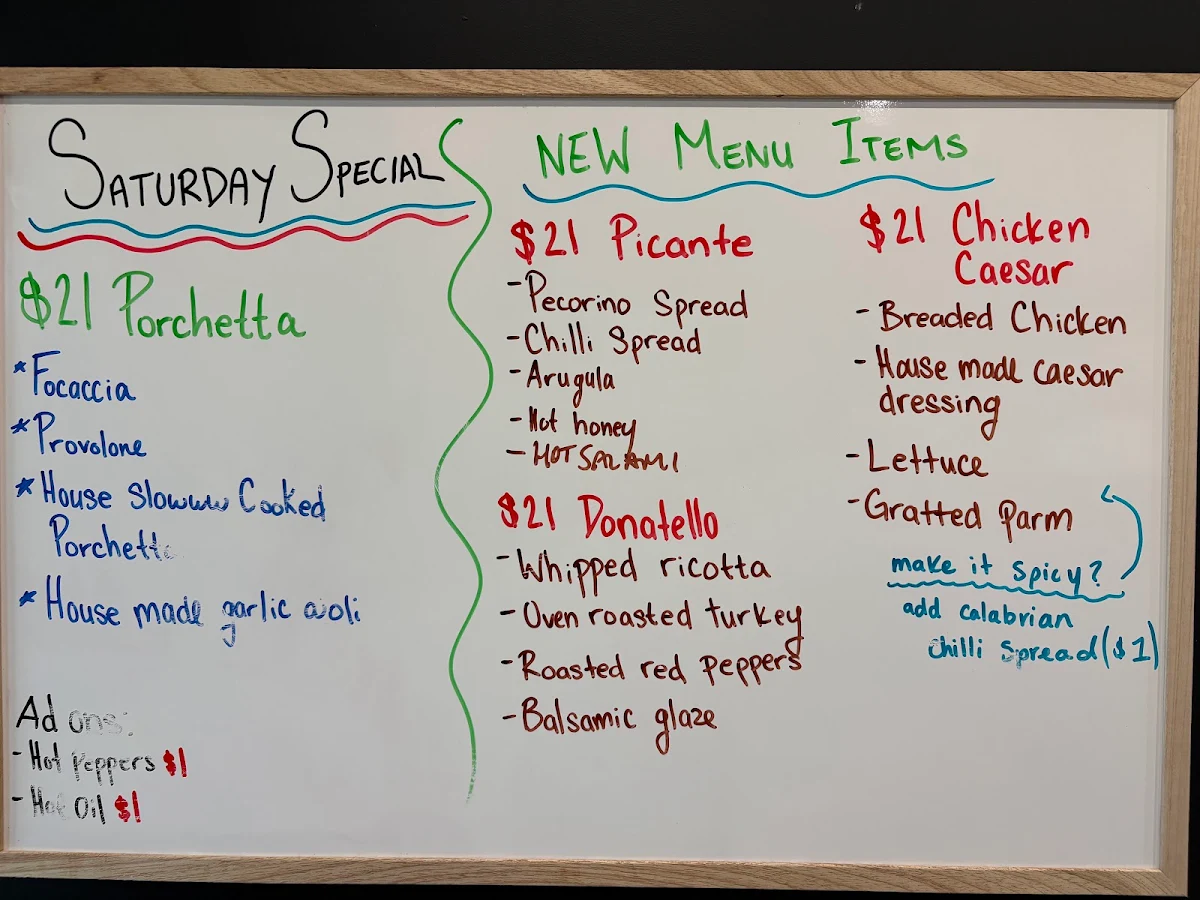 SATURDAY SPECIAL
$21 Porchetta
* Focaccia
* Provolone
* House Slowww Cooked
Porchetta
* House made garlic aioli
Ad ons:
- Hot Peppers $1
- Hot Oil $1
NEW MENU ITEMS
$21 Picante
- Pecorino Spread
- Chilli Spread
- Arugula
- Hot honey
- HOT SALAMI
$21 Donatello
- Whipped ricotta
- Oven roasted turkey
- Roasted red peppers
- Balsamic glaze
$21 Chicken
Caesar
- Breaded Chicken
- House made caesar
dressing
- Lettuce
- Gratted Parm
make it spicy?
add calabrian
chilli spread ($1)